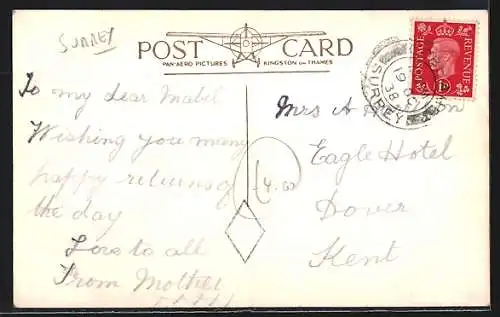 SURREY
POST CARD
PAN-AERO PICTURES KINGSTON ON THAMES
POSTAGE REVENUE
1D
SURREY
19
38
To my dear Mabel
Wishing you many
happy returns of
the day
Love to all
From Mother
Mrs A H
Eagle Hotel
Dover
Kent